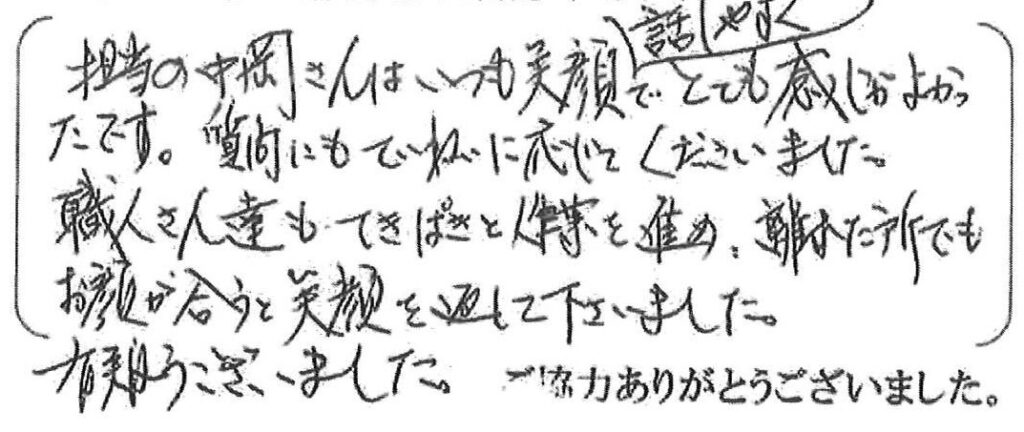 担当の中岡さんはいつも笑顔で話しやすくとても感じがよかっ
たです。質問にもていねいに応じてくださいました。
職人さん達もてきぱきと作業を進め、離れた所でも
お顔が合うと笑顔を返して下さいました。
有難うございました。 ご協力ありがとうございました。